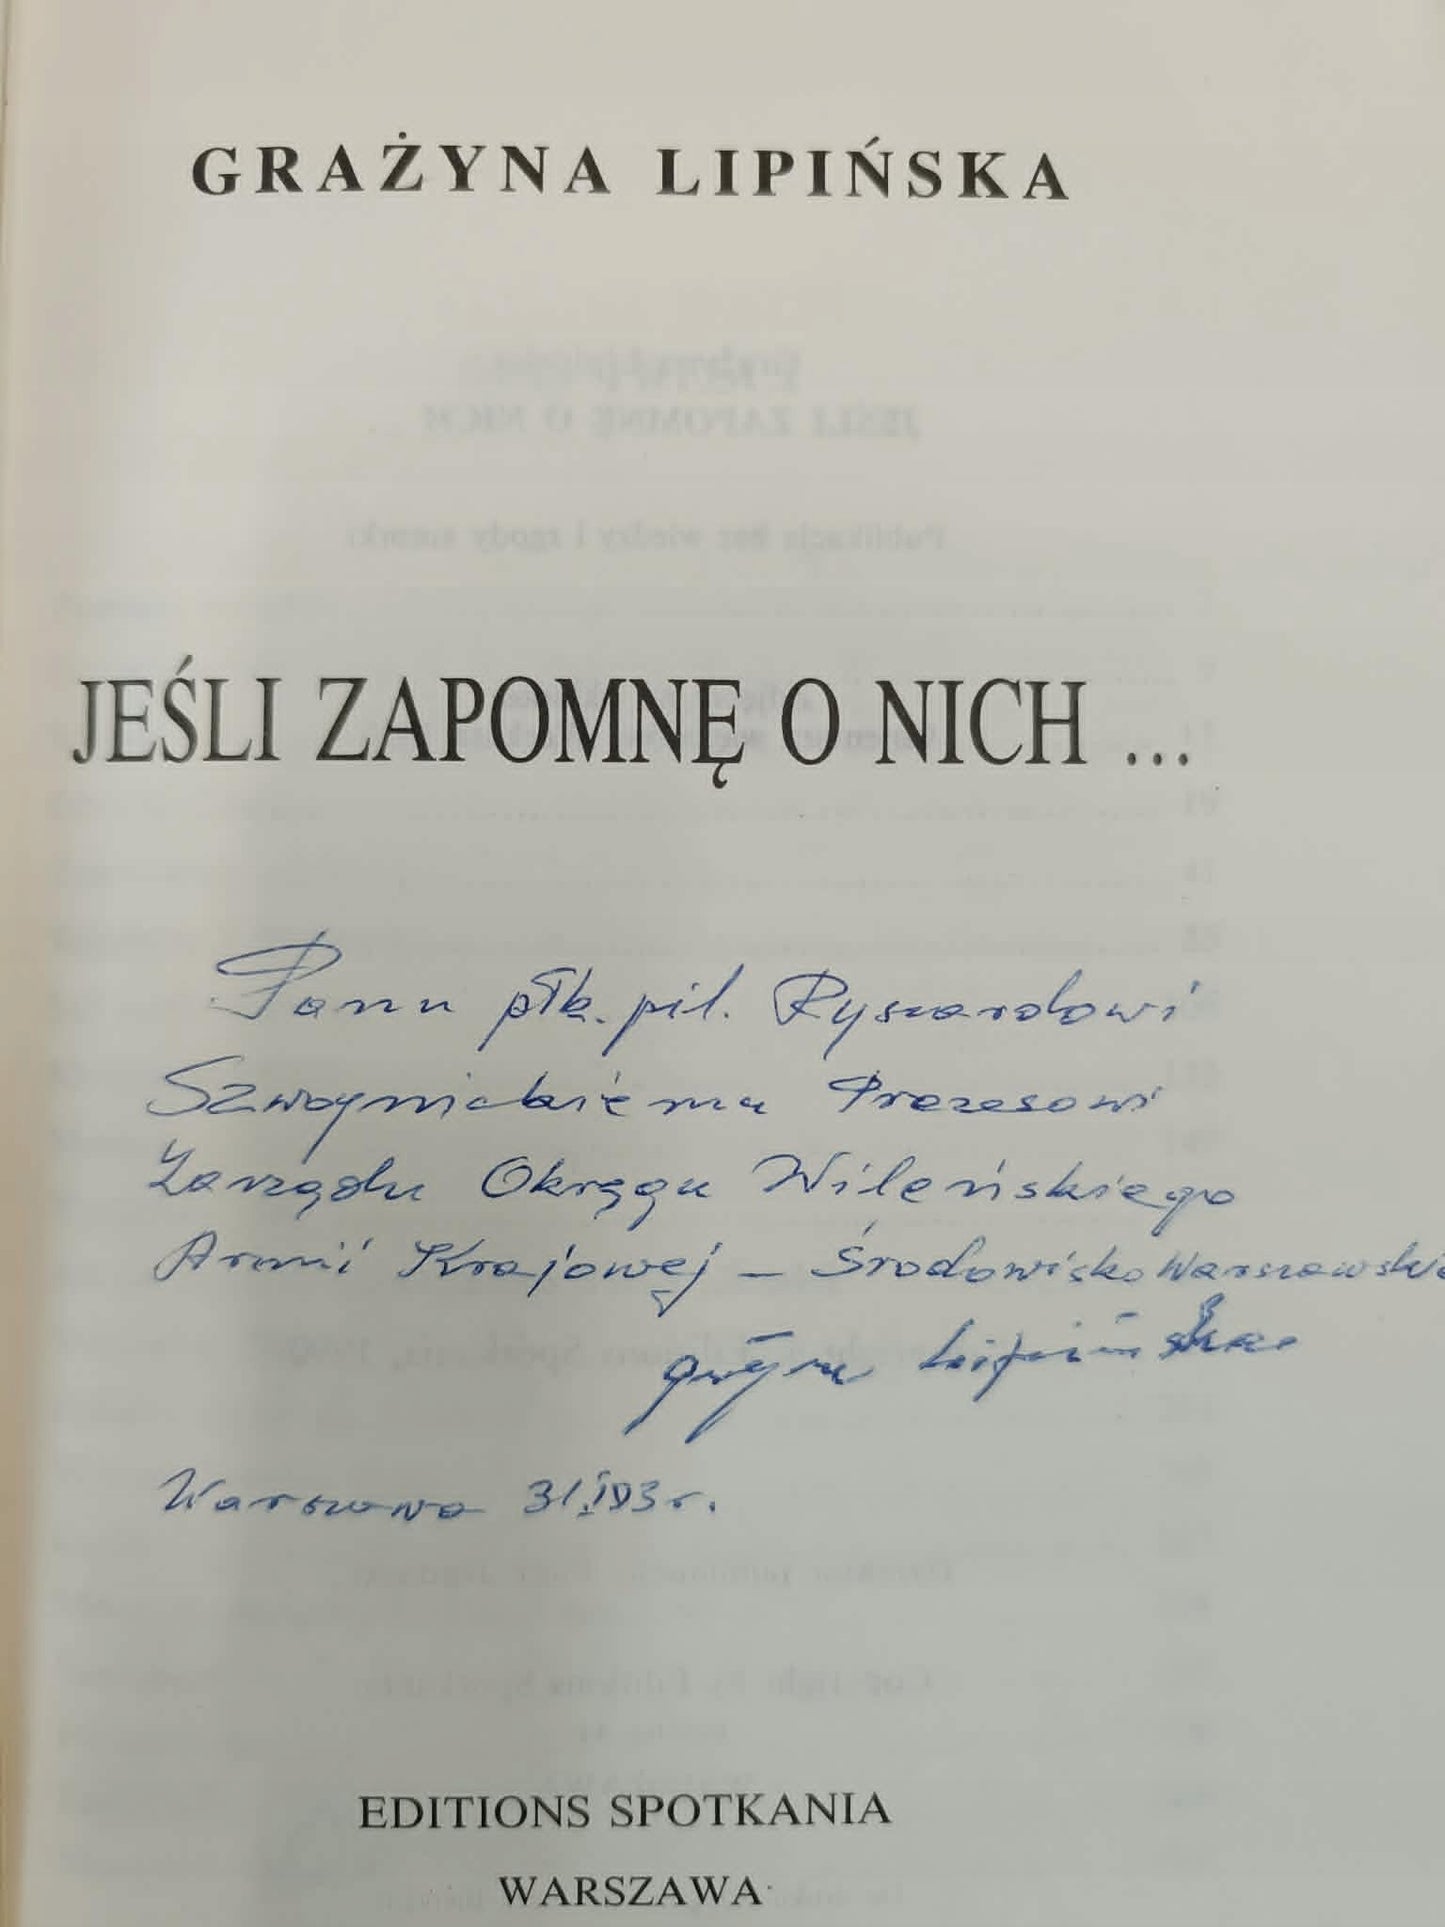 GRAŻYNA LIPIŃSKA
JEŚLI ZAPOMNĘ O NICH ...
Panu płk. pil. Ryszardowi
Szwoynickiemu Prezesowi
Zarządu Okręgu Wileńskiego
Armii Krajowej – Środowisko Warszawskie
Grażyna Lipińska
Warszawa 31.I 93 r.
EDITIONS SPOTKANIA
WARSZAWA